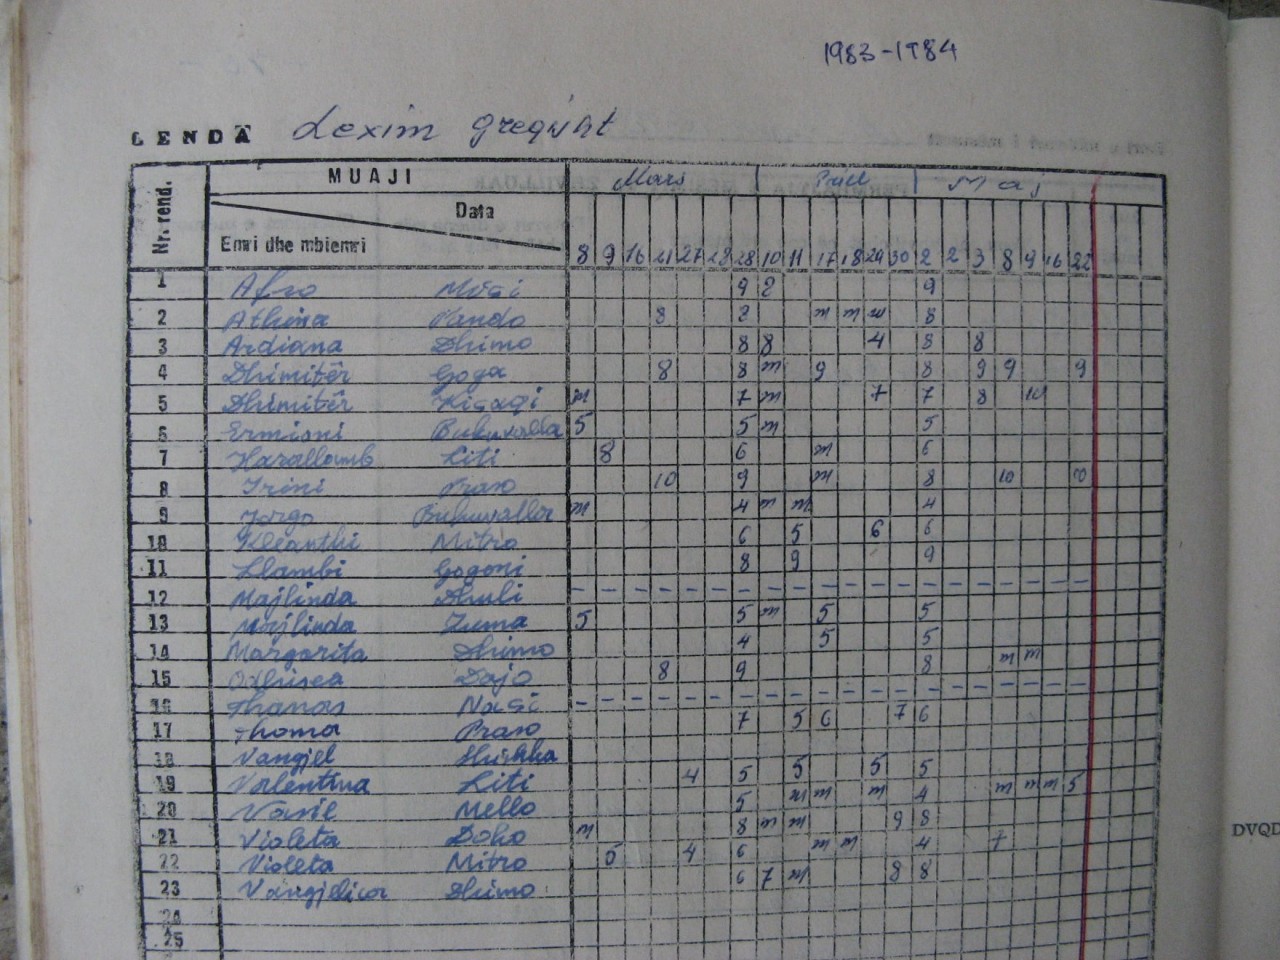 1983-1984
LENDA Lexim greqisht
MUAJI Mars Prill Maj
Nr. rend. Data
Emri dhe mbiemri 8 9 16 21 27 28 28 10 11 17 18 24 30 2 2 3 8 9 16 22
1 Afro 9 2 9
2 Athina Pando 8 8 m m m 8
3 Ardiana Dhimo 8 8 4 8 8
4 Dhimitër Goga 8 8 m 9 8 9 9 9
5 Dhimitër m 7 m 7 7 8 10
6 Ermioni Bukuvalla 5 5 m 5
7 Harallamb Liti 8 6 m 6
8 Irini Praso 10 9 m 8 10 10
9 Jorgo Bukuvalla m 4 m m 4
10 Kleanthi Mitro 6 5 6 6
11 Llambi Gogoni 8 9 9
12 Majlinda
13 Majlinda Zuma 5 5 m 5 5
14 Margarita Dhimo 4 5 5
15 Odhisea Dajo 8 9 8 m m
16 Thanas Nasi
17 Thoma Praso 7 5 6 7 6
18 Vangjel
19 Valentina Liti 4 5 5 5 5
20 Vasil Mello 5 m m m 4 m m m 5
21 Violeta Doko m 8 m m 9 8
22 Violeta Mitro 5 4 6 m m 4 7
23 Vangjelica Dhimo 6 7 m 8 8
24
25
DVQD